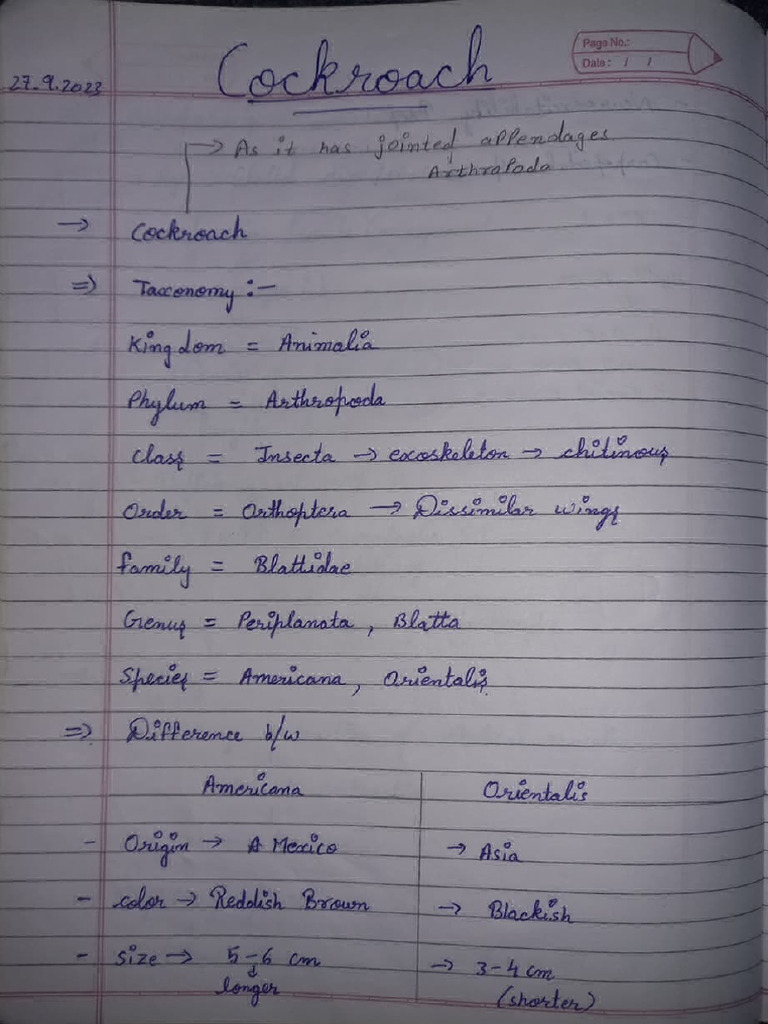 Page No.:
27.9.2023 Cockroach
Date: / /
→ As it has jointed appendages
Arthropoda
→ Cockroach
⇒ Taxonomy :-
Kingdom = Animalia
Phylum = Arthropoda
Class = Insecta → exoskeleton → chitinous
Order = Orthoptera → Dissimilar wings
family = Blattidae
Genus = Periplanata, Blatta
Species = Americana, Orientalis
⇒ Difference b/w
Americana Orientalis
- Origin → A Mexico → Asia
- color → Reddish Brown → Blackish
- Size → 5-6 cm → 3-4 cm
↓
longer (shorter)